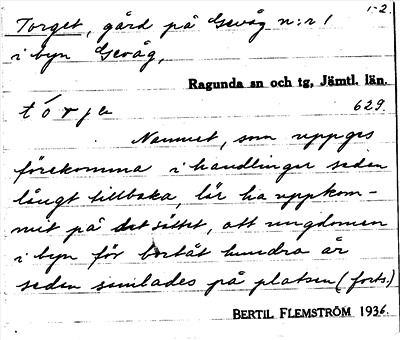 Torget, gård på Gevåg n:r 1
1-2.
i byn Gevåg,
Ragunda sn och tg, Jämtl. län.
tórje
629.
Namnet, som uppges
förekomma i handlingar sedan
långt tillbaka, lär ha uppkom-
mit på det sättet, att ungdomen
i byn för bortåt hundra år
sedan samlades på platsen (forts.)
BERTIL FLEMSTRÖM 1936.